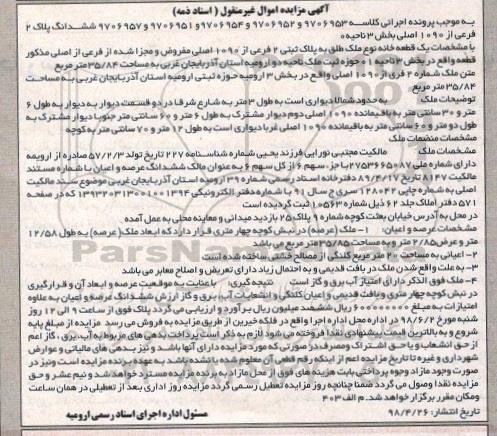 آگهی مزایده اموال غیرمنقول ( اسناد ذمه)
به موجب پرونده اجرائی کلاسه ۹۷۰۶۹۵۳ و ۹۷۰۶۹۵۲ و ۹۷۰۶۹۵۴ و ۹۷۰۶۹۵۱ و ۹۷۰۶۹۵۷ ششدانگ پلاک ۲
فرعی از ۱۰۹۰ اصلی بخش ۳ ناحیه ۰۰
با مشخصات یک قطعه خانه نوع ملک طلق به پلاک ثبتی ۲ فرعی از ۱۰۹۰ اصلی مفروض و مجزا شده از فرعی از اصلی مذکور
قطعه واقع در بخش ۳ ناحیه ۰۱ حوزه ثبت ملک ناحیه دو ارومیه استان آذربایجان غربی به مساحت ۳۵/۸۴ متر مربع
متن ملک شماره ۲ فرعی از ۱۰۹۰ اصلی واقع در بخش ۳ ارومیه حوزه ثبتی ارومیه استان آذربایجان غربی به مساحت
۳۵/۸۴ متر مربع
توضیحات ملک به حدود شمالا دیواری است به طول ۳ متر به شارع شرقا در دو قسمت دیوار به دیوار به طول ۶
متر و ۳۰ سانتی متر به باقیمانده ۱۰۹۰ اصلی دوم دیوار مشترک به طول ۶ متر و ۶۰ سانتی متر جنوبا دیوار مشترک به
طول دو متر و ۶۰ سانتی متر به باقیمانده ۱۰۹۰ اصلی غربا دیواری است به طول ۱۲ متر و ۷۰ سانتی متر به کوچه
مشخصات منضمات ملک
مشخصات مالکیت مالکیت مجتبی نورایی فرزند یحیی شماره شناسنامه ۲۲۷ تاریخ تولد ۵۷/۲/۳ صادره از ارومیه
دارای شماره ملی ۲۷۵۳۶۶۵۰۸۷ با جزء سهم ۶ از کل سهم ۶ به عنوان مالک ششدانگ عرصه و اعیان با شماره مستند
مالکیت ۸۱۴۷ تاریخ ۸۹/۴/۱۷ دفترخانه اسناد رسمی شماره ۳۹ ارومیه استان آذربایجان غربی موضوع سند مالکیت
اصلی به شماره چاپی ۱۲۸۰۴۲ سری ج سال ۹۱ با شماره دفتر الکترونیکی ۱۳۹۳۲۰۳۱۳۰۰۱۰۰۱۳۹۴ که در صفحه
۵۷۱ دفتر املاک جلد ۶۲ ذیل شماره ۱۰۵۶۳ ثبت گردیده است
در محل به آدرس خیابان بعثت کوچه شماره ۹ پلاک ۲۵ بازدید میدانی و معاینه محلی به عمل آمده
مشخصات عرصه و اعیان: ۱- ملک (عرصه) در نبش کوچه چهار متری قرار دارد که ابعاد ملک (عرصه) به طول ۱۲/۵۸
متر و عرض ۲/۸۵ متر و به مساحت ۳۵/۸۵ متر مربع می باشد
۲- اعیانی به مساحت ۲۰ متر مربع کلنگی از مصالح خشتی ساخته شده است
۳- به علت واقع شدن ملک در بافت قدیمی و به احتمال زیاد دارای تعریض و اصلاح معابر می باشد
۴- ملک فوق الذکر دارای امتیاز آب برق و گاز است نتیجه گیری: با عنایت به موقعیت عرصه و ابعاد آن و قرارگیری
در نبش کوچه چهار متری و بافت قدیمی و اعیان کلنگی و انشعابات آب، برق و گاز ارزش ششدانگ عرصه و اعیان به علاوه
امتیازات به مبلغ ۶۰۰۰۰۰۰۰۰ ریال ششصد میلیون ریال برآورد و ارزیابی می گردد پلاک فوق از ساعت ۹ الی ۱۲ روز
شنبه مورخ ۹۸/۶/۲ در اداره محل اداره اجرا واقع در فلکه خیرین از طریق مزایده به فروش می رسد مزایده از مبلغ پایه
شروع و به بالاترین قیمت پیشنهادی نقدا فروخته می شود لازم به ذکر است پرداخت بدهی های مربوطه به آب، برق، گاز اعم
از حق انشعاب و یا حق اشتراک و مصرف در صورتی که مورد مزایده دارای آنها باشد و نیز بدهی های مالیاتی و عوارض
شهرداری و غیره تا تاریخ مزایده اعم از اینکه رقم قطعی آن معلوم شده یا نشده باشد به عهده برنده مزایده است ونیز در
صورت وجود مازاد وجوه پرداختی بابت هزینه های فوق از محل مازاد به برنده مزایده مسترد خواهد شد و نیم عشر و حق
مزایده نقدا وصول می گردد ضمنا چنانچه روز مزایده تعطیل رسمی گردد مزایده روز اداری بعد از تعطیلی در همان ساعت
ومکان مقرر برگزار خواهد شد. م الف ۴۰۳
تاریخ انتشار: ۹۸/۴/۲۶ مسئول اداره اجرای اسناد رسمی ارومیه